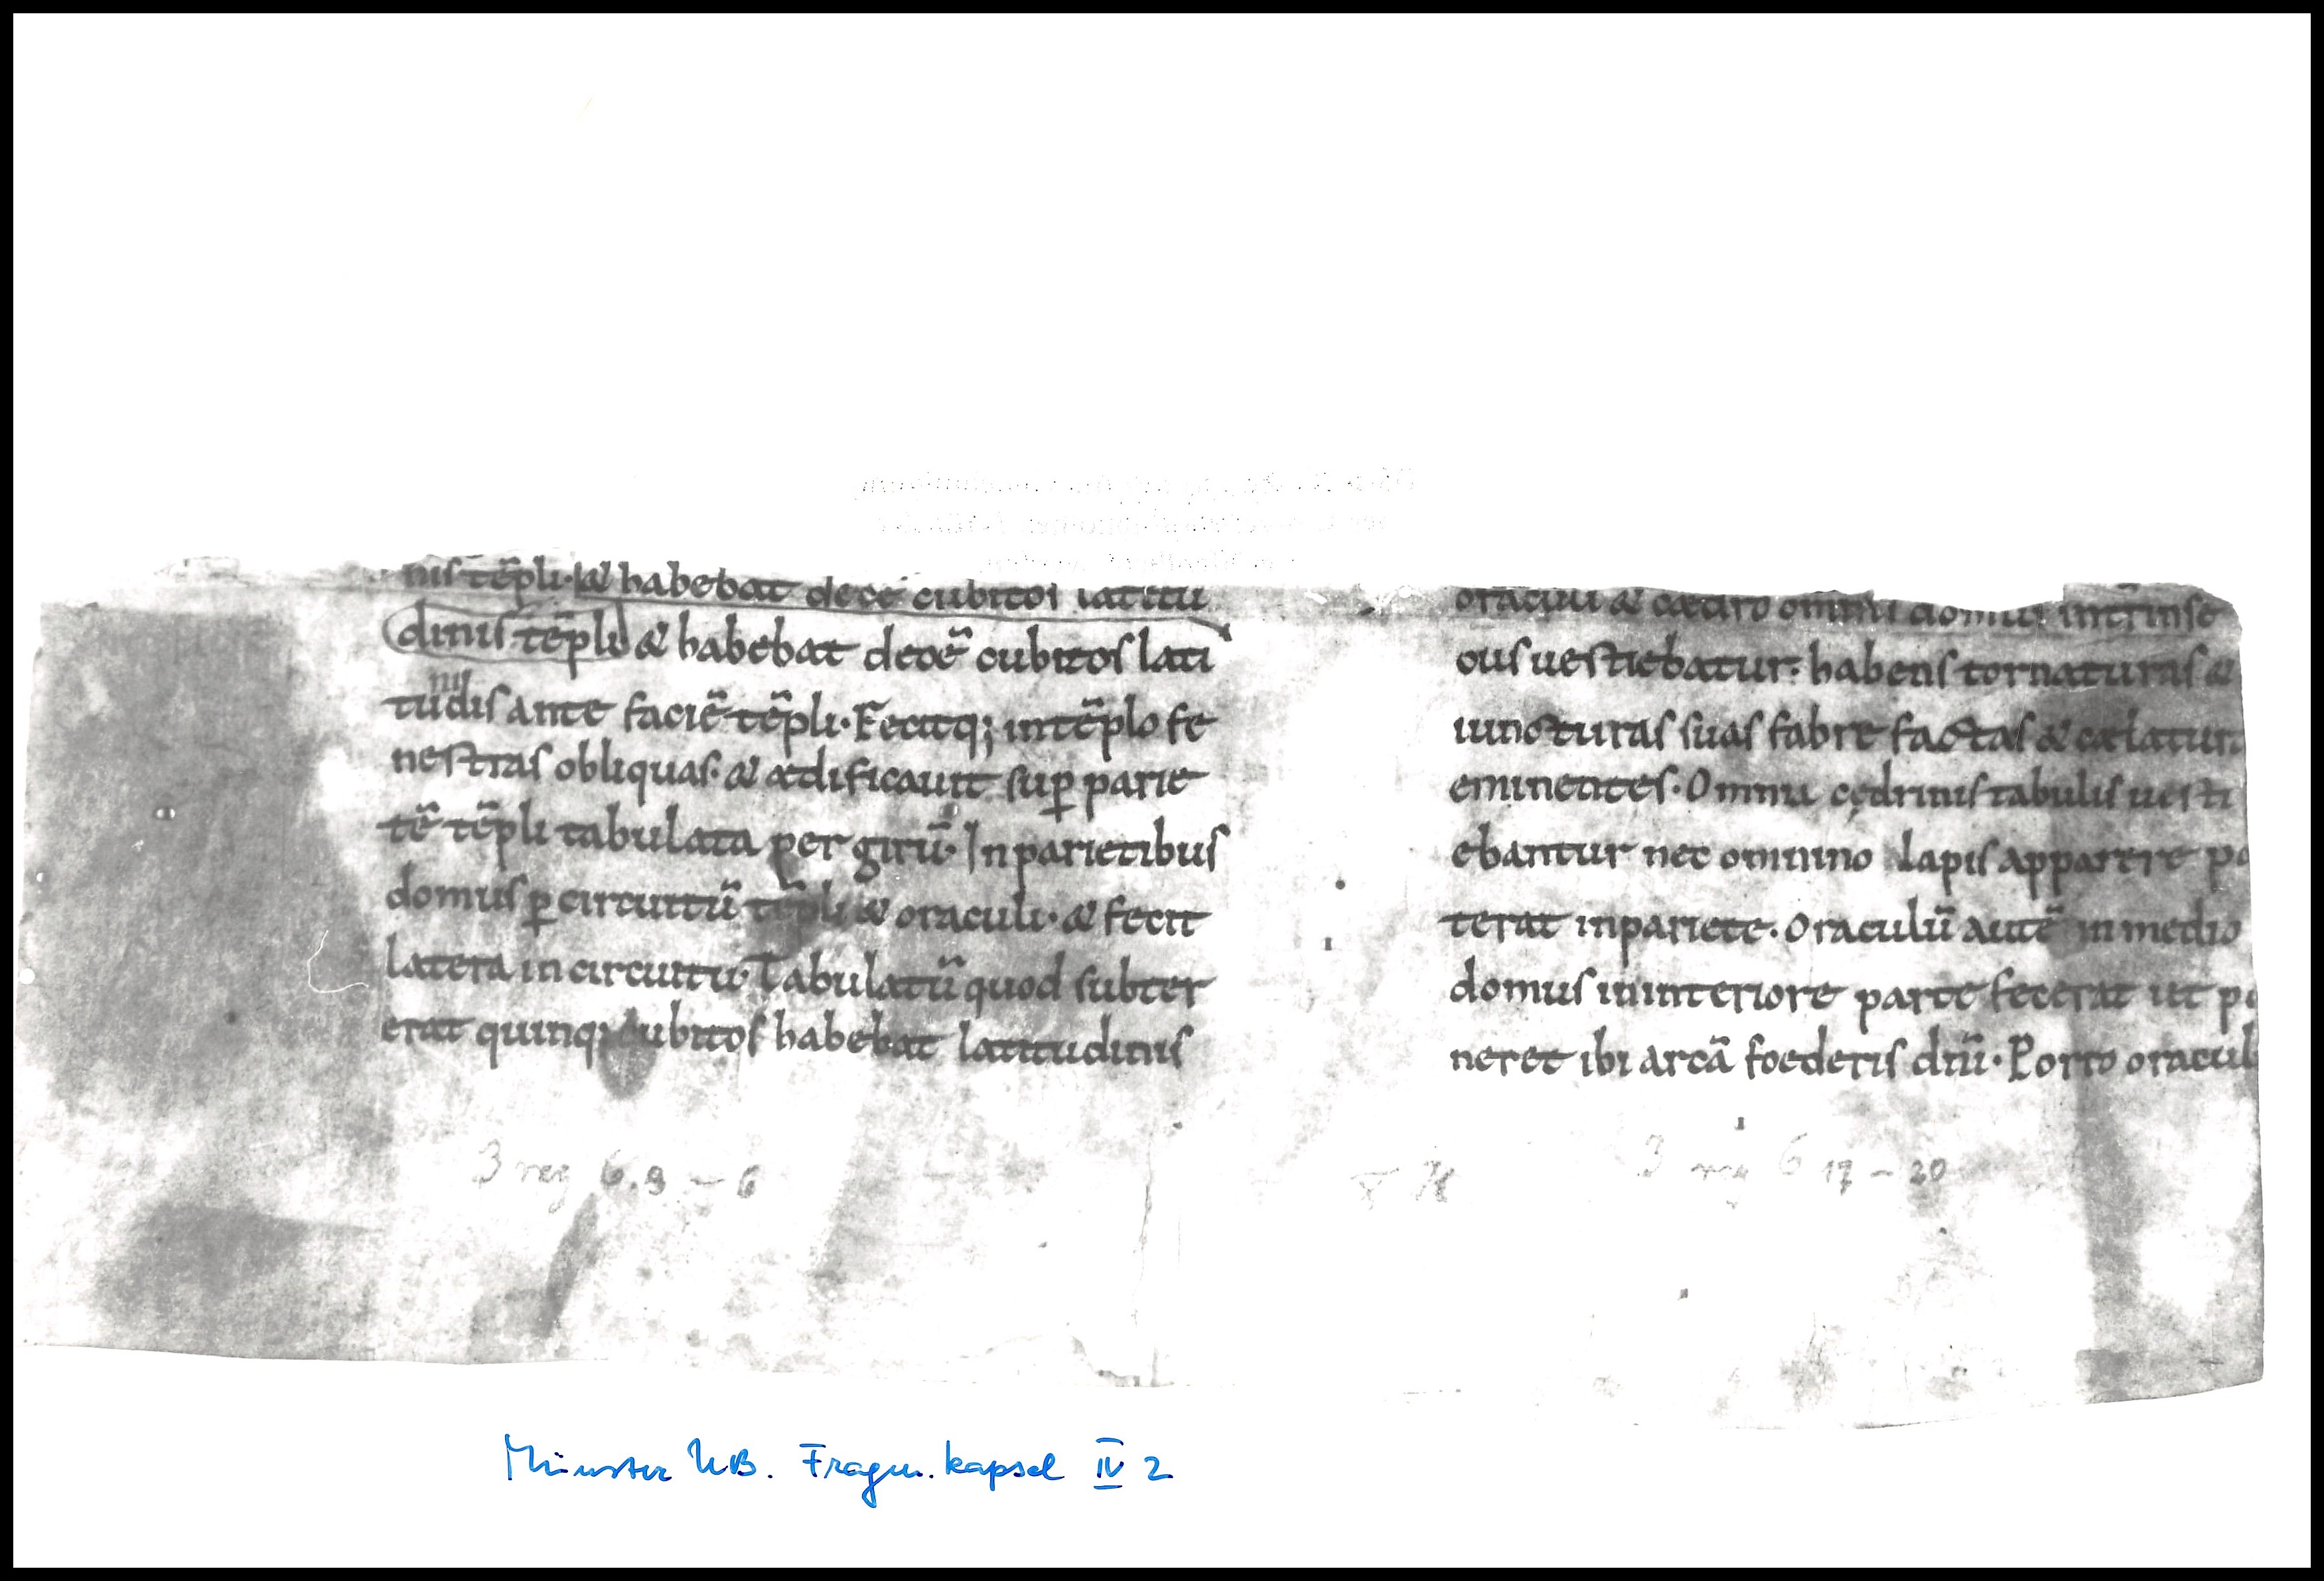 nis tẽpli · & habebat decẽ cubitos latitu
dinis tẽpli & habebat decẽ cubitos lati
tudis ante faciẽ tẽpli · Fecitq; in tẽplo fe
ni
nestras obliquas · & ædificauit sup parie
tẽ tẽpli tabulata per girũ · In parietibus
domus p circuitũ tẽpli & oraculi · & fecit
latera in circuitu · Tabulatũ quod subter
erat quinq; cubitos habebat latitudinis
3 reg 6.3 – 6
oraculi & cædro omnis domus intrinse
cus uestiebatur · habens tornaturas &
iuncturas suas fabre factas & cælatur
eminentes · Omnia cędrinis tabulis uesti
ebantur nec omnino lapis apparere po
terat in pariete · Oraculũ autẽ in medio
domus in interiore parte fecerat ut po
neret ibi arcã foederis dñi · Porro oracul
3 reg 6 17 – 20
Münster UB. Fragm. kapsel IV 2